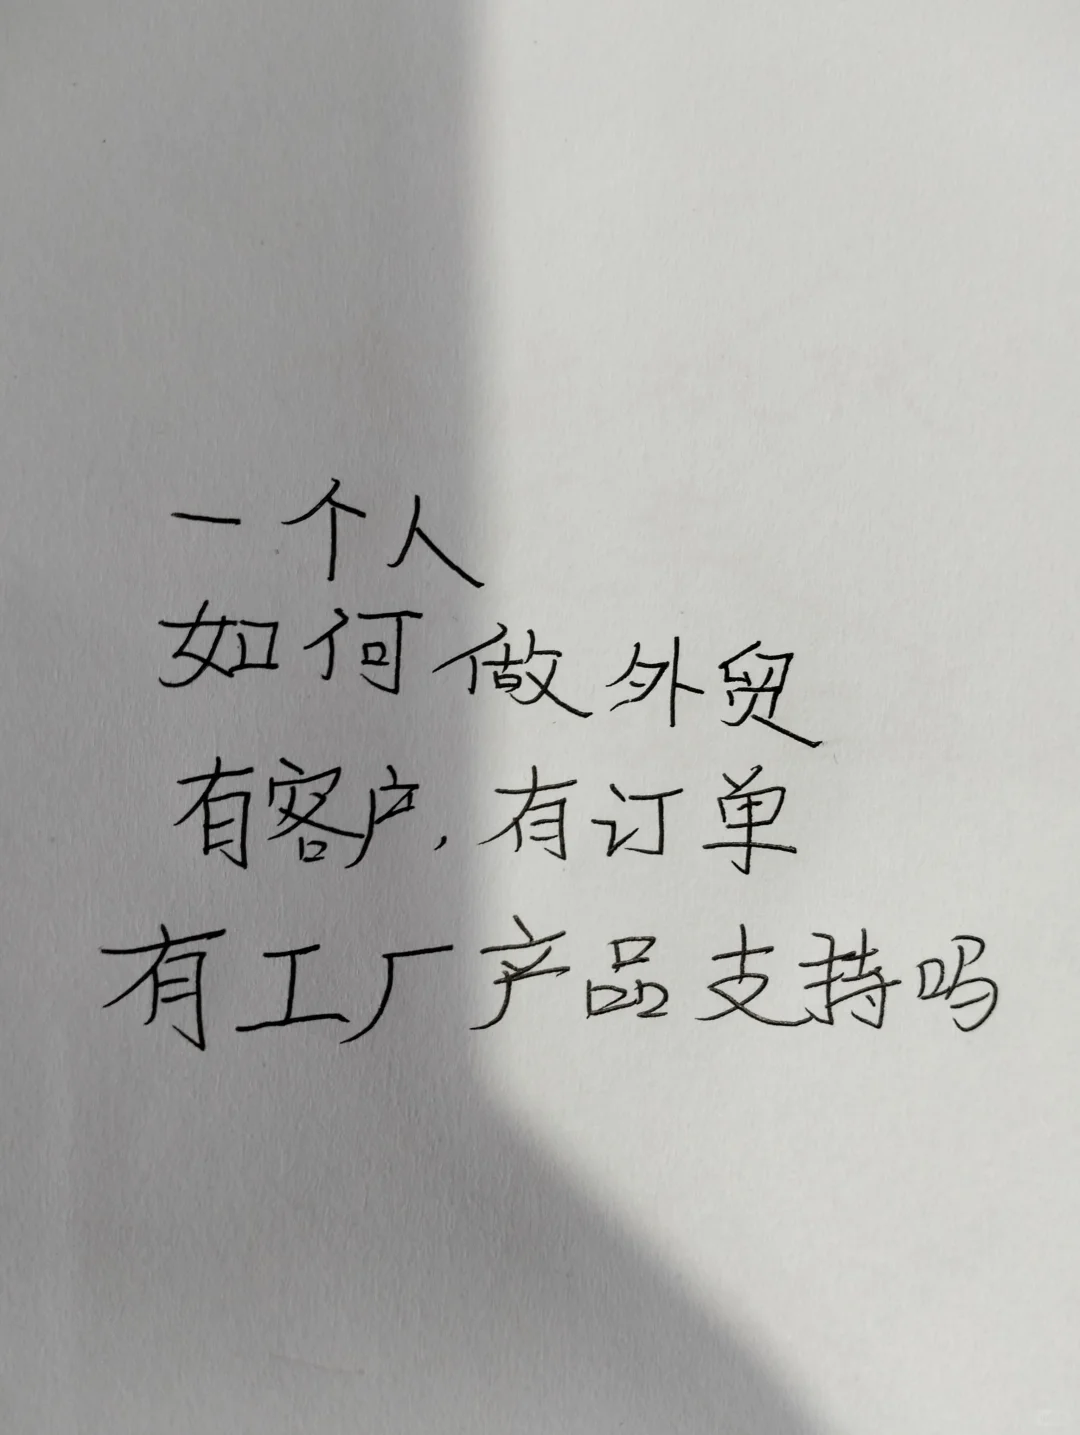 一个人
如何做外贸
有客户,有订单
有工厂产品支持吗